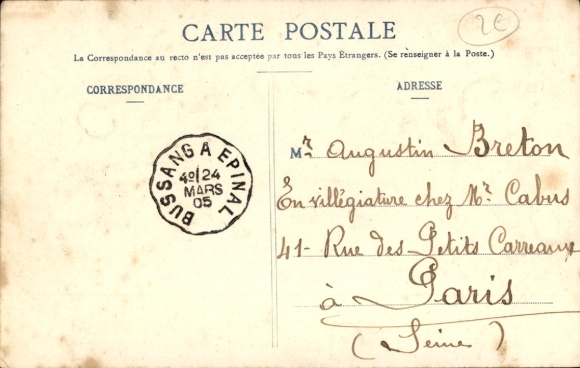 CARTE POSTALE
2€
La Correspondance au recto n'est pas acceptée par tous les Pays Étrangers. (Se renseigner à la Poste.)
CORRESPONDANCE
ADRESSE
BUSSANG A EPINAL
4º/24
MARS
05
Mr. Augustin Breton
En villégiature chez Mr. Cabus
41- Rue des Petits Carreaux
à Paris
(Seine)